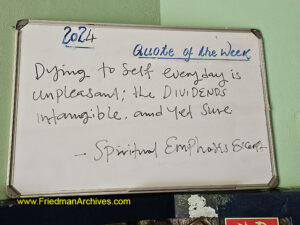 2024
Quote of the Week
Dying to Self everyday is
unpleasant; the DIVIDENDS
intangible, and yet sure
- Spiritual Emphasis
www.FriedmanArchives.com